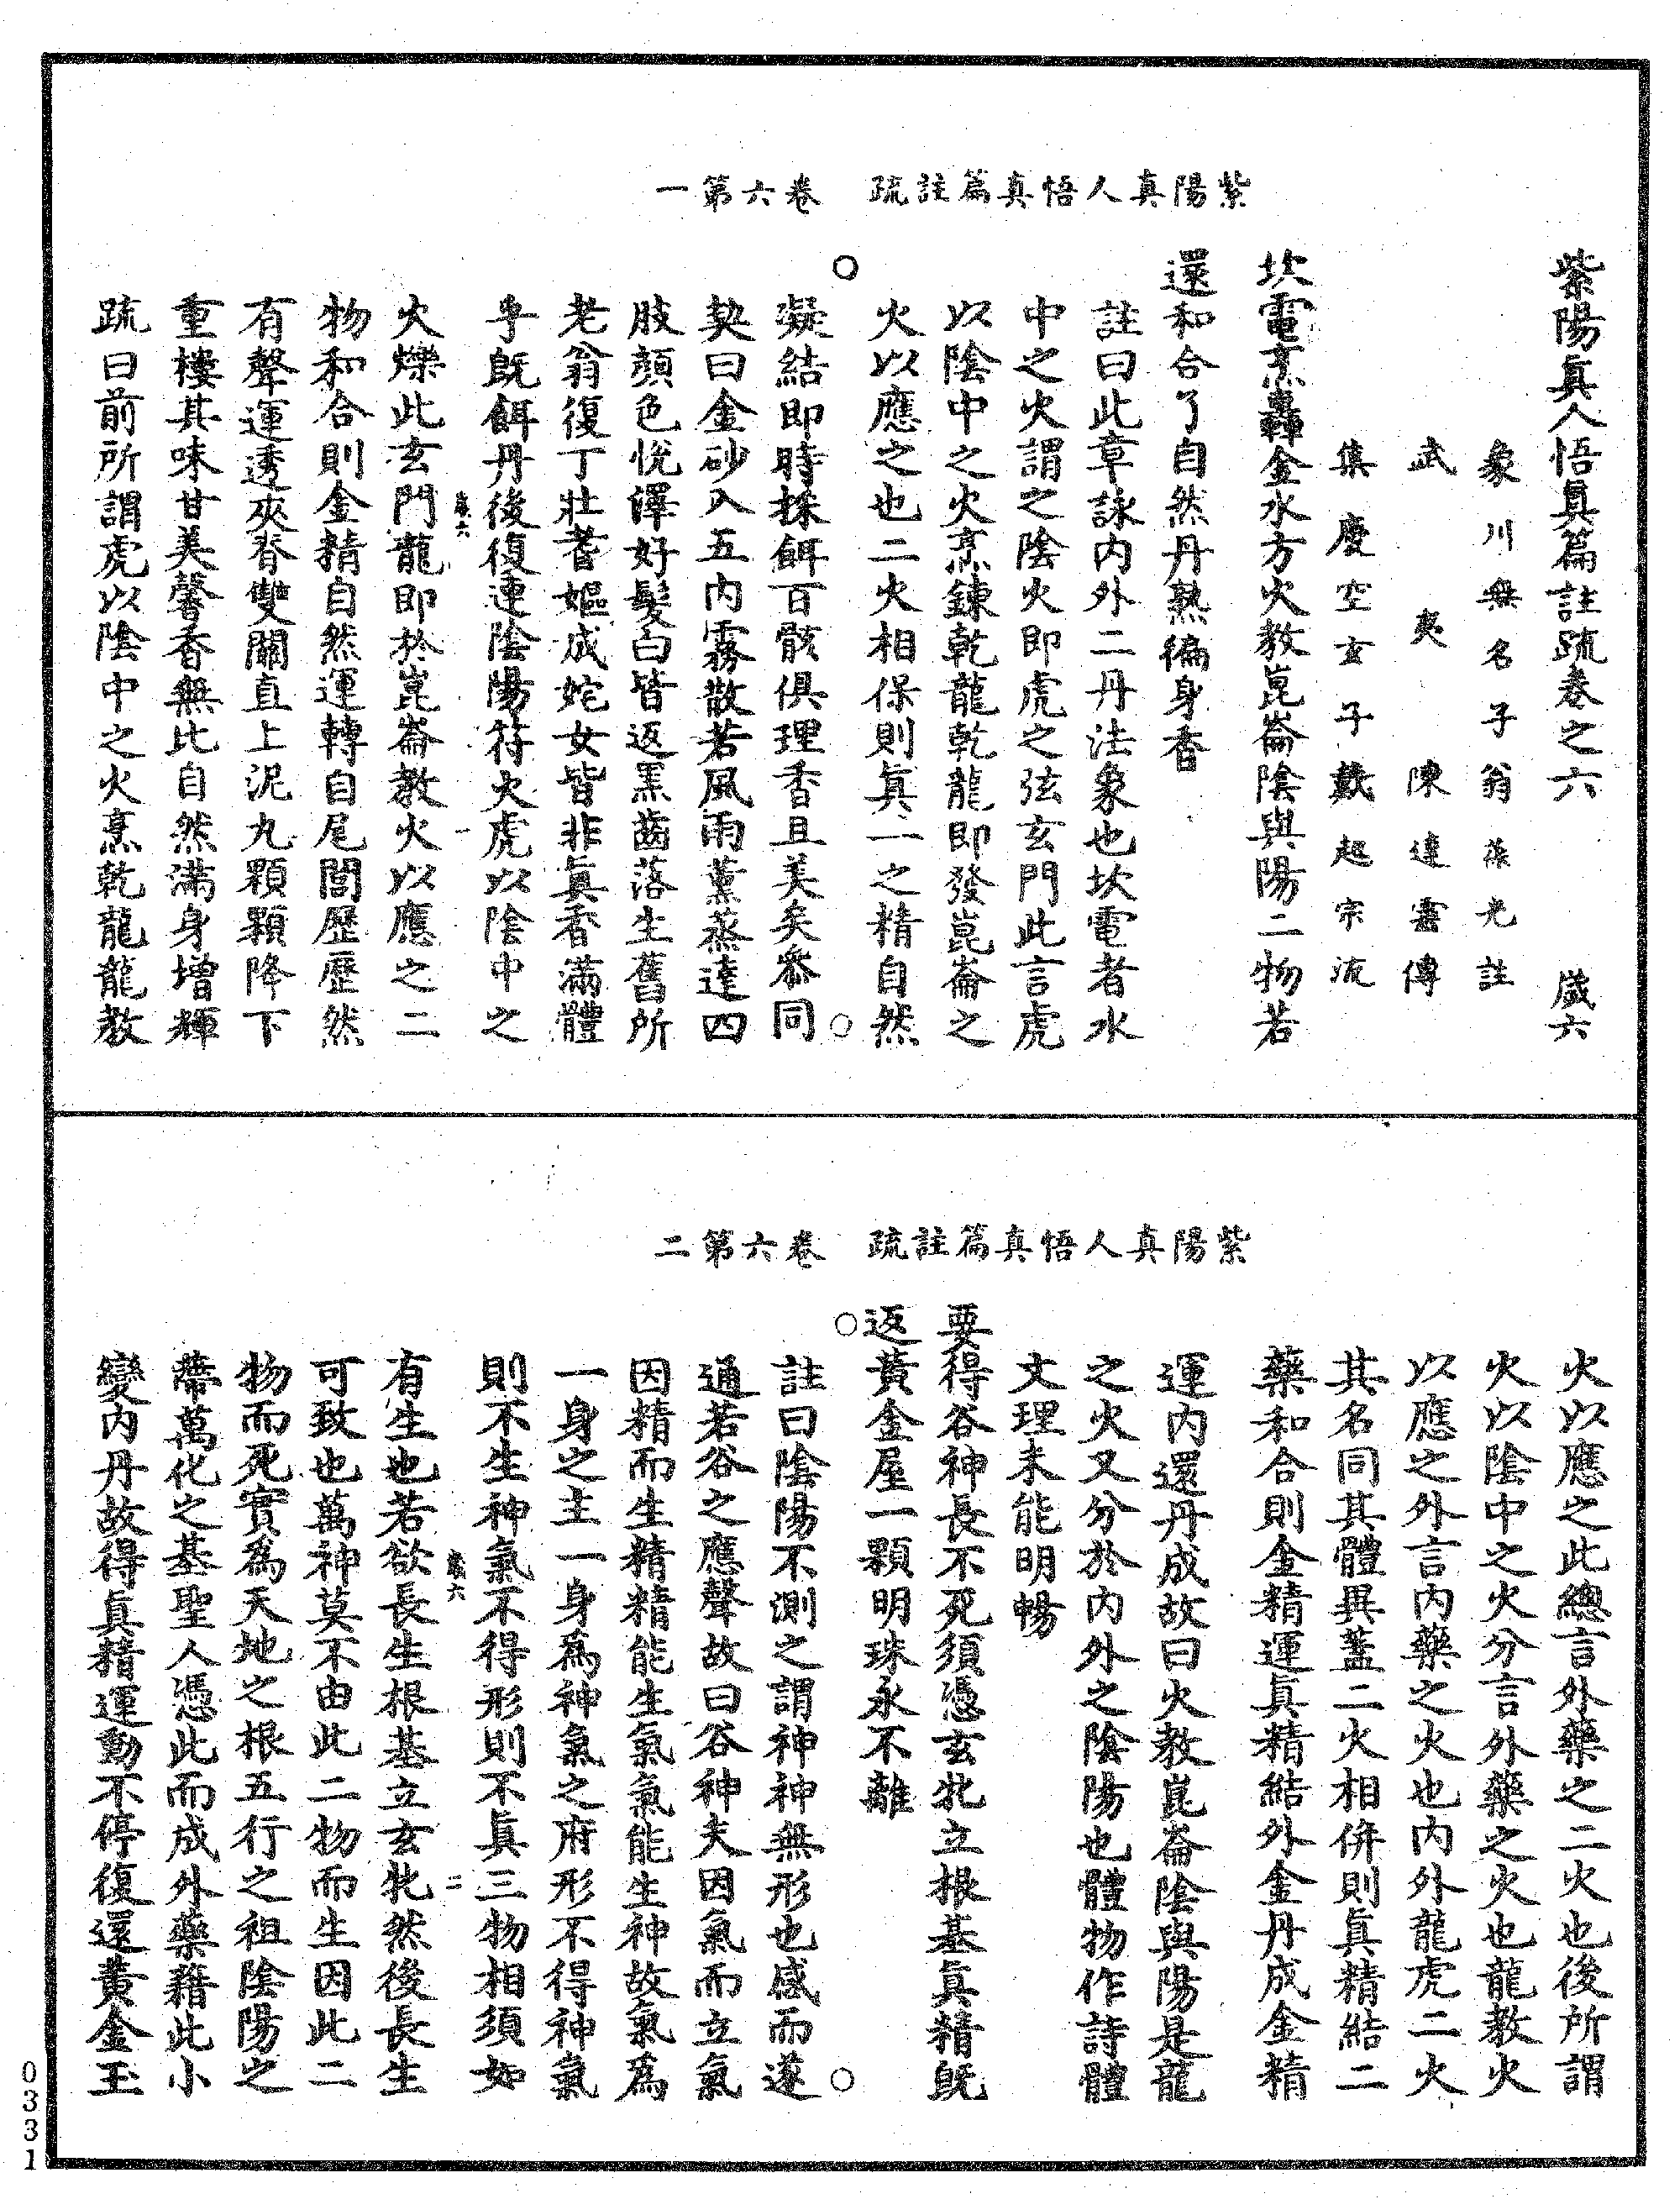 紫陽真人悟真篇註疏　卷六第一
紫陽眞人悟眞篇註疏卷之六　歲六
象川無名子翁葆光註
武夷陳達靈傳
集慶空玄子戴起宗疏
坎電烹轟金水方火敎崑崙陰與陽二物若
還和合了自然丹熟徧身香
註曰此章詠內外二丹法象也坎電者水
中之火謂之陰火即虎之弦玄門此言虎
以陰中之火烹鍊乾龍乾龍即發崑崙之
火以應之也二火相保則眞一之精自然
凝結即時採餌百骸俱理香且美矣叅同
契曰金砂入五內霧散若風雨薰蒸達四
肢顔色悅澤好髮白皆返黑齒落生舊所
老翁復丁壯耆嫗成姹女皆非眞香滿體
乎旣餌丹後復連陰陽符火虎以陰中之
歲六　一
火爍此玄門龍即於崑崙敎火以應之二
物和合則金精自然運轉自尾閭歷歷然
有聲運透夾脊雙關直上泥丸顆顆降下
重樓其味甘美馨香無比自然滿身增輝
疏曰前所謂虎以陰中之火烹乾龍龍敎
紫陽真人悟真篇註疏　卷六第二
火以應之此總言外藥之二火也後所謂
火以陰中之火分言外藥之火也龍敎火
以應之外言內藥之火也內外龍虎二火
其名同其體異蓋二火相併則眞精結二
藥和合則金精運眞精結外金丹成金精
運內還丹成故曰火敎崑崙陰與陽是龍
之火又分於內外之陰陽也體物作詩體
文理未能明暢
要得谷神長不死須憑玄牝立根基眞精旣
返黃金屋一顆明珠永不離
註曰陰陽不測之謂神神無形也感而遂
通若谷之應聲故曰谷神夫因氣而立氣
因精而生精精能生氣氣能生神故氣爲
一身之主一身爲神氣之府形不得神氣
則不生神氣不得形則不眞三物相須如
歲六　二
有生也若欲長生根基立玄牝然後長生
可致也萬神莫不由此二物而生因此二
物而死實爲天地之根五行之祖陰陽之
蔕萬化之基聖人憑此而成外藥藉此小
變內丹故得眞精運動不停復還黃金玉
0331